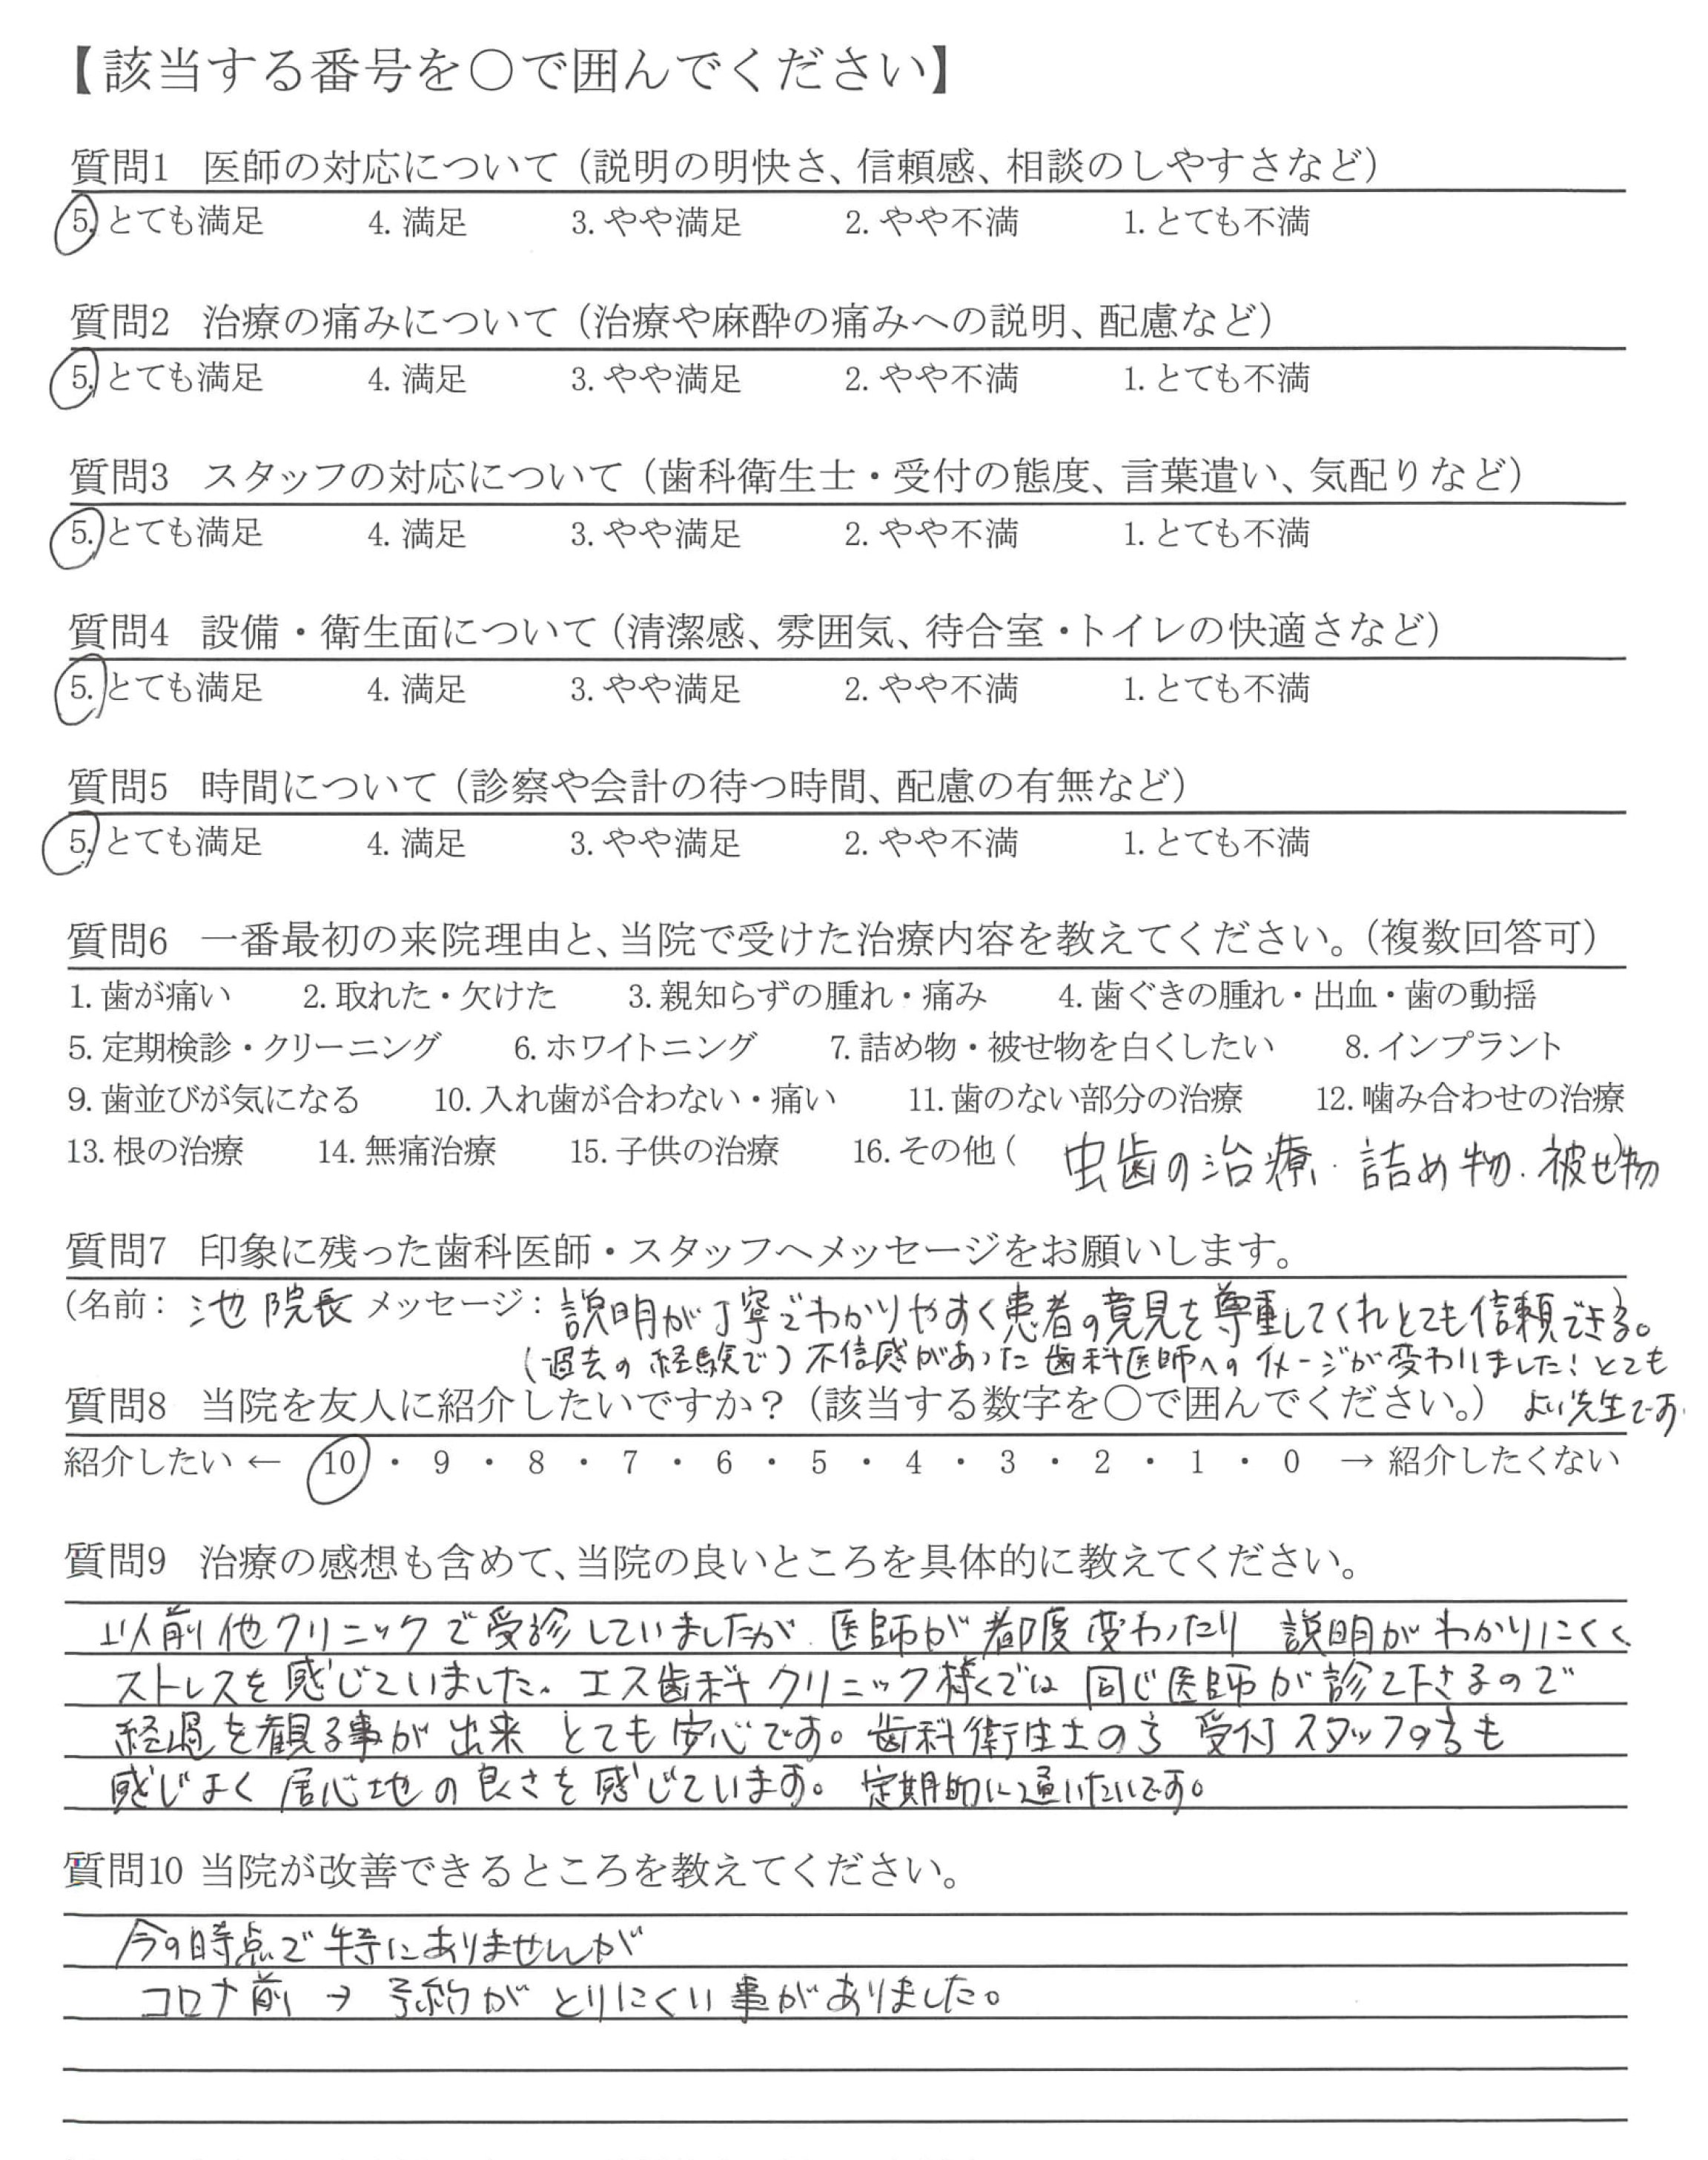 【該当する番号を○で囲んでください】
質問1 医師の対応について（説明の明快さ、信頼感、相談のしやすさなど）
5. とても満足 4. 満足 3. やや満足 2. やや不満 1. とても不満
質問2 治療の痛みについて（治療や麻酔の痛みへの説明、配慮など）
5. とても満足 4. 満足 3. やや満足 2. やや不満 1. とても不満
質問3 スタッフの対応について（歯科衛生士・受付の態度、言葉遣い、気配りなど）
5. とても満足 4. 満足 3. やや満足 2. やや不満 1. とても不満
質問4 設備・衛生面について（清潔感、雰囲気、待合室・トイレの快適さなど）
5. とても満足 4. 満足 3. やや満足 2. やや不満 1. とても不満
質問5 時間について（診察や会計の待つ時間、配慮の有無など）
5. とても満足 4. 満足 3. やや満足 2. やや不満 1. とても不満
質問6 一番最初の来院理由と、当院で受けた治療内容を教えてください。（複数回答可）
1. 歯が痛い 2. 取れた・欠けた 3. 親知らずの腫れ・痛み 4. 歯ぐきの腫れ・出血・歯の動揺
5. 定期検診・クリーニング 6. ホワイトニング 7. 詰め物・被せ物を白くしたい 8. インプラント
9. 歯並びが気になる 10. 入れ歯が合わない・痛い 11. 歯のない部分の治療 12. 噛み合わせの治療
13. 根の治療 14. 無痛治療 15. 子供の治療 16. その他（ 虫歯の治療・詰め物・被せ物）
質問7 印象に残った歯科医師・スタッフへメッセージをお願いします。
（名前：池院長 メッセージ：説明が丁寧でわかりやすく患者の意見を尊重してくれとても信頼できる。）
（過去の経験で）不信感があった歯科医師へのイメージが変わりました！とても
よい先生です
質問8 当院を友人に紹介したいですか？（該当する数字を○で囲んでください。）
紹介したい ← 10 ・ 9 ・ 8 ・ 7 ・ 6 ・ 5 ・ 4 ・ 3 ・ 2 ・ 1 ・ 0 → 紹介したくない
質問9 治療の感想も含めて、当院の良いところを具体的に教えてください。
以前他クリニックで受診していましたが 医師が都度変わったり 説明がわかりにくく
ストレスを感じていました。エス歯科クリニック様では 同じ医師が診て下さるので
経過を観る事が出来 とても安心です。歯科衛生士の方 受付スタッフの方も
感じよく居心地の良さを感じています。定期的に通いたいです。
質問10 当院が改善できるところを教えてください。
今の時点で特にありませんが
コロナ前 → 予約がとりにくい事がありました。